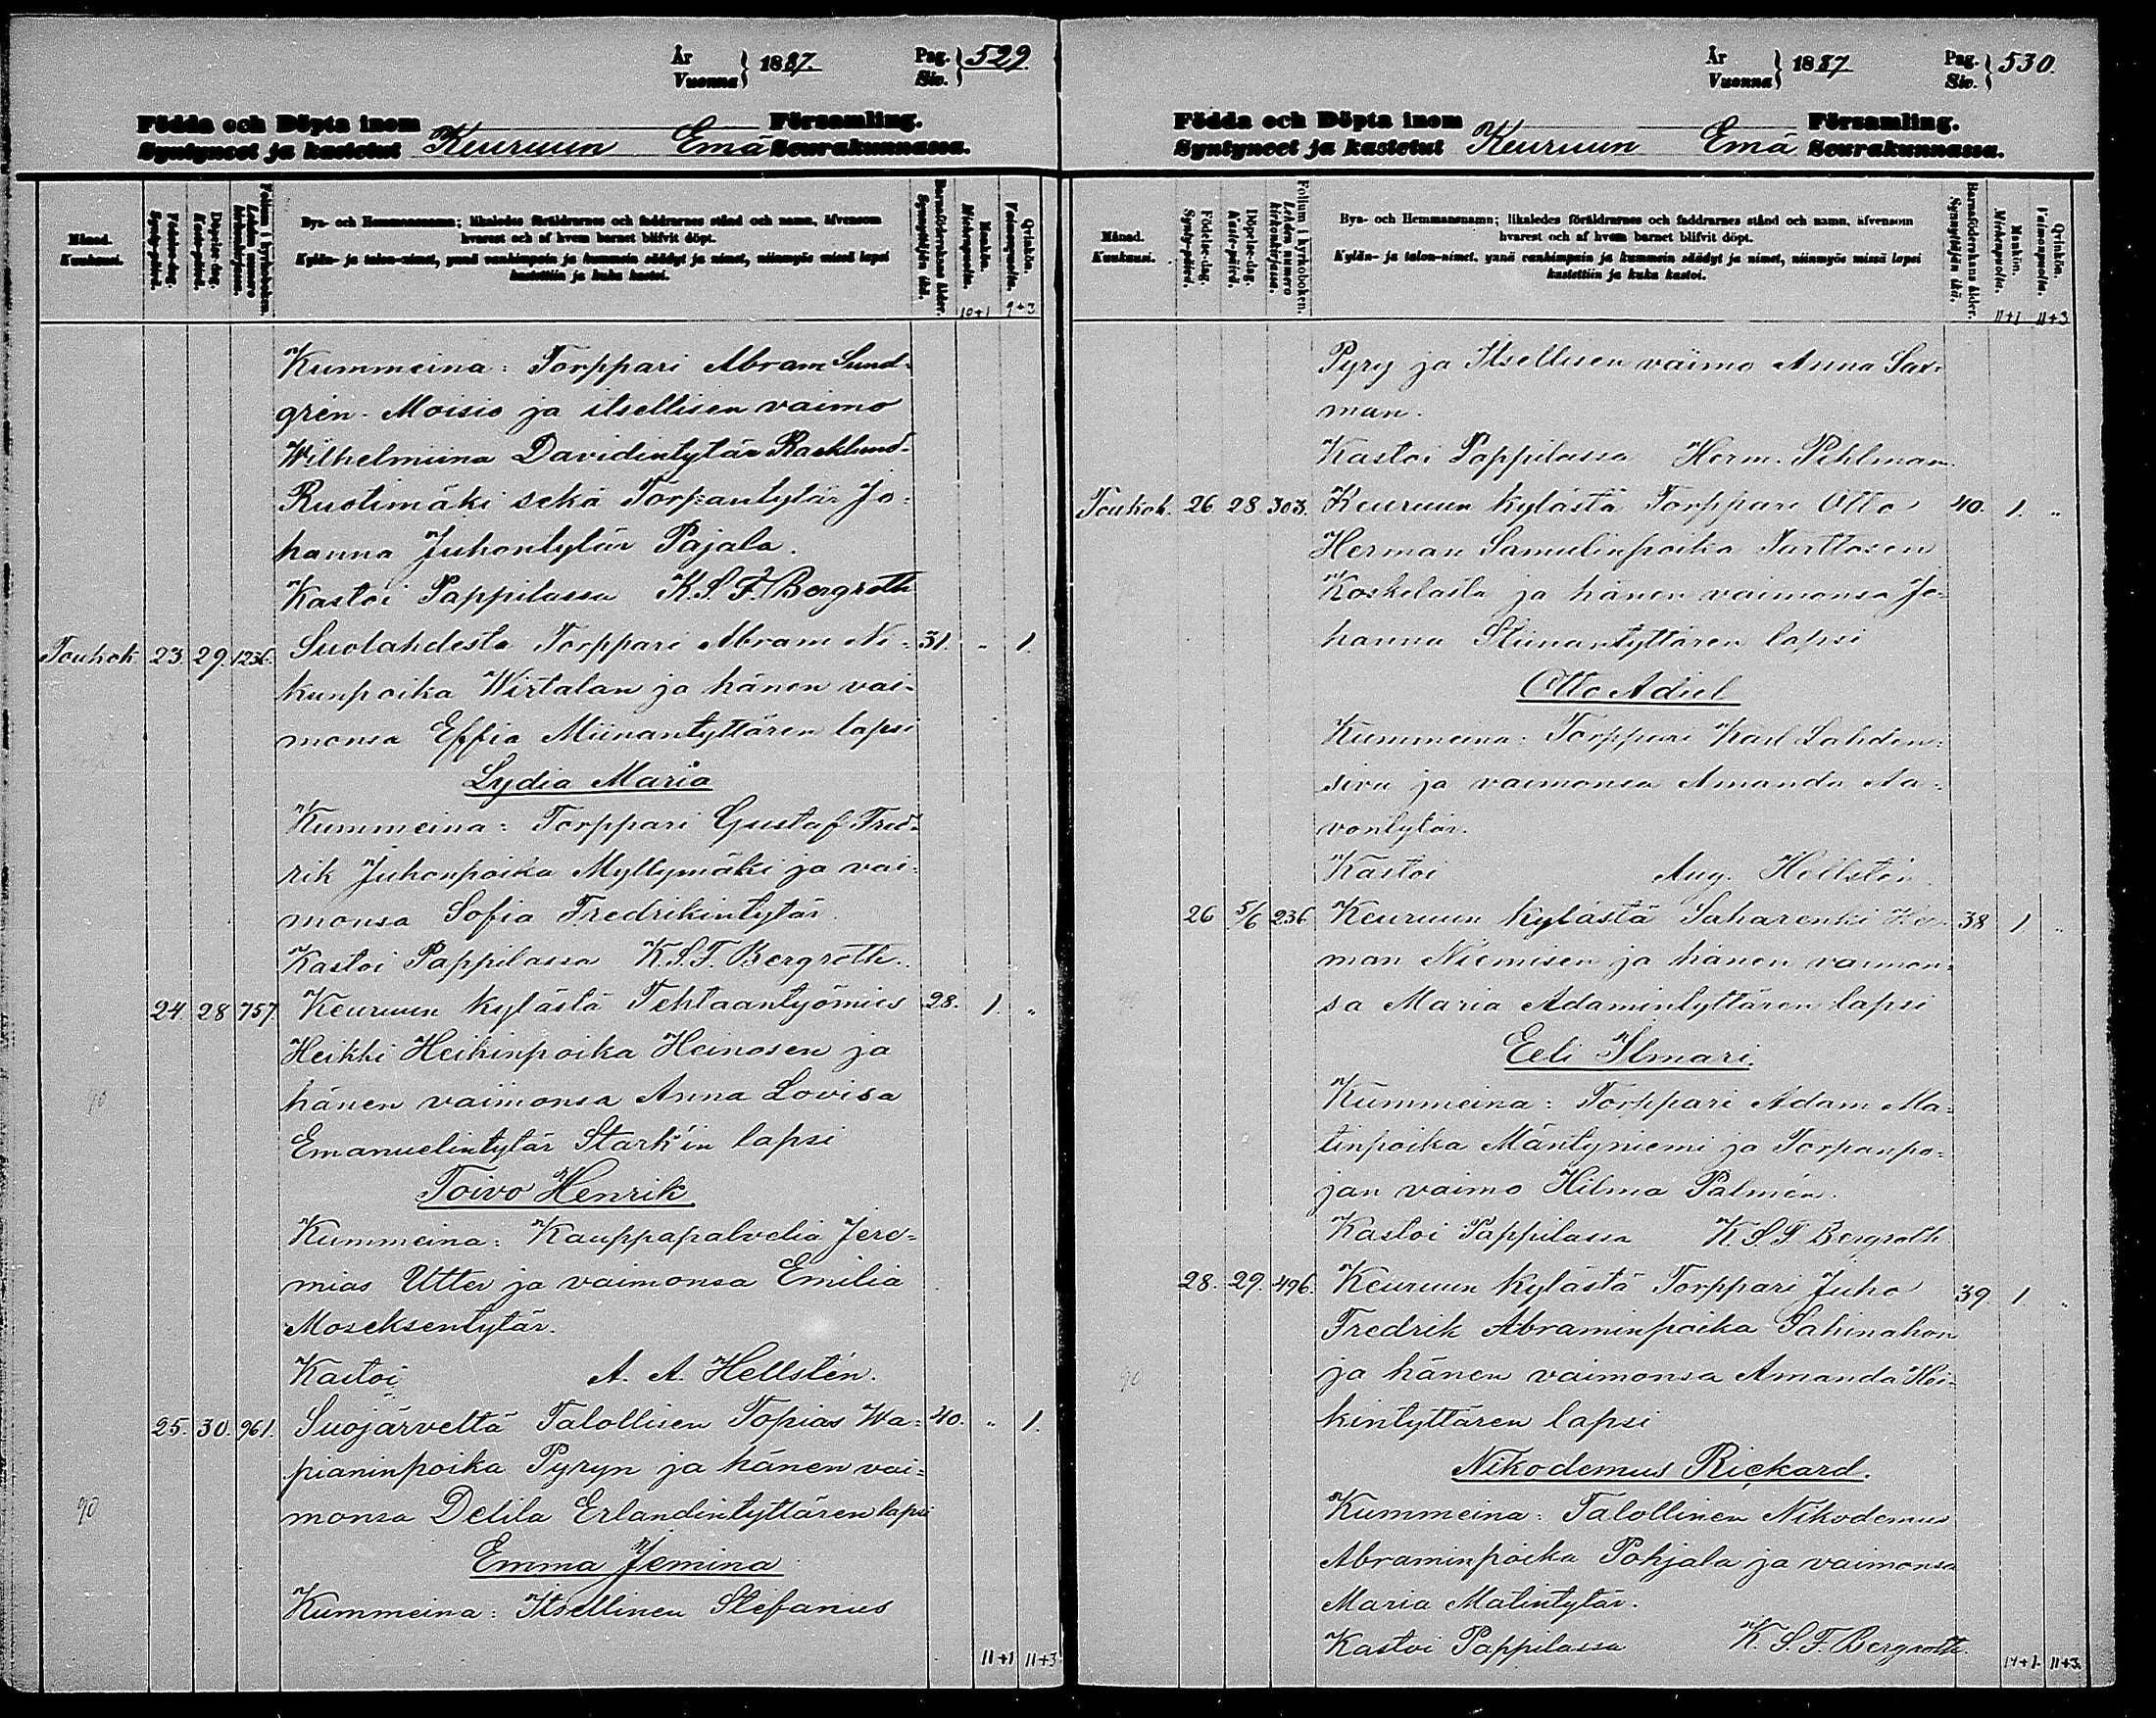 År
Vuonna } 1887.
Pag.
Siv. } 529.
Födda och Döpta inom Församling.
Syntyneet ja kastetut Keuruun Emä Seurakunnassa.
Månad.
Kuukausi.
Födelse-dag.
Synty-päivä.
Döpelse-dag.
Kaste-päivä.
Folium i kyrkoboken.
Lehden numero
kirkonkirjassa.
Bya- och Hemmansnamn; likaledes föräldrarnes och faddrarnes stånd och namn, äfvensom
hvarest och af hvem barnet blifvit döpt.
Kylän- ja talon-nimet, ynnä vanhimpain ja kummein säädyt ja nimet, niinmyös missä lapsi
kastettiin ja kuka kastoi.
Barnaföderskans ålder.
Synnyttäjän ikä.
Mankön.
Miehenpuolta.
Qvinkön.
Vaimonpuolta.
10+1 9+3
Kummeina: Torppari Abram Sund-
grén-Moisio ja itsellisen vaimo
Wilhelmiina Davidintytär Racklund-
Ruotimäki sekä Torpantytär Jo-
hanna Juhontytär Pajala.
Kastoi Pappilassa K.S.F. Bergroth
Toukok. 23. 29. 1236. Suolahdesta Torppari Abram Ni- 31. " 1.
kunpoika Wirtalan ja hänen vai-
monsa Effia Miinantyttären lapsi
Lydia Maria
Kummeina: Torppari Gustaf Fred-
rik Juhonpoika Myllymäki ja vai-
monsa Sofia Fredrikintytär
Kastoi Pappilassa K.S.F. Bergroth.
24. 28 757. Keuruun kylästä Tehtaantyömies 28. 1. "
Heikki Heikinpoika Heinosen ja
90 hänen vaimonsa Anna Lovisa
Emanuelintytär Stark'in lapsi
Toivo Henrik
Kummeina: Kauppapalvelia Jere-
mias Utter ja vaimonsa Emilia
Moseksentytär.
Kastoi A. A. Hellstén.
25. 30. 961. Suojärveltä Talollisen Topias Wa- 40. " 1.
pianinpoika Pyryn ja hänen vai-
90 monsa Delila Erlandintyttären lapsi
Emma Jemina
Kummeina: Itsellinen Stefanus
11+1 11+3
År
Vuonna } 1887
Pag.
Siv. } 530.
Födda och Döpta inom Församling.
Syntyneet ja kastetut Keuruun Emä Seurakunnassa.
Månad.
Kuukausi.
Födelse-dag.
Synty-päivä.
Döpelse-dag.
Kaste-päivä.
Folium i kyrkoboken.
Lehden numero
kirkonkirjassa.
Bya- och Hemmansnamn; likaledes föräldrarnes och faddrarnes stånd och namn, äfvensom
hvarest och af hvem barnet blifvit döpt.
Kylän- ja talon-nimet, ynnä vanhimpain ja kummein säädyt ja nimet, niinmyös missä lapsi
kastettiin ja kuka kastoi.
Barnaföderskans ålder.
Synnyttäjän ikä.
Mankön.
Miehenpuolta.
Qvinkön.
Vaimonpuolta.
11+1 11+3
Pyry ja Itsellisen vaimo Anna Sax-
man.
Kastoi Pappilassa Herm. Pihlman.
Toukok. 26. 28. 303. Keuruun kylästä Torppari Otto 40. 1. "
Herman Samulinpoika Turttosen
Koskelasta ja hänen vaimonsa Jo-
hanna Stiinantyttären lapsi
Otto Adiel
Kummeina: Torppari Karl Lahden-
sivu ja vaimonsa Amanda Aa-
rontytär.
Kastoi Aug. Hellstén
26 5/6 236 Keuruun kylästä Saharenki Her- 38 1 "
man Niemisen ja hänen vaimon-
sa Maria Adamintyttären lapsi
Eeli Ilmari.
Kummeina: Torppari Adam Ma-
tinpoika Mäntyniemi ja Torpanpo-
jan vaimo Hilma Palmén.
Kastoi Pappilassa K.S.F. Bergroth
28. 29. 496. Keuruun kylästä Torppari Juho 39. 1. "
Fredrik Abraminpoika Sahinahon
90 ja hänen vaimonsa Amanda Hei-
kintyttären lapsi
Nikodemus Rickard.
Kummeina: Talollinen Nikodemus
Abraminpoika Pohjala ja vaimonsa
Maria Matintytär.
Kastoi Pappilassa K.S.F. Bergroth.
14+1. 11+3.